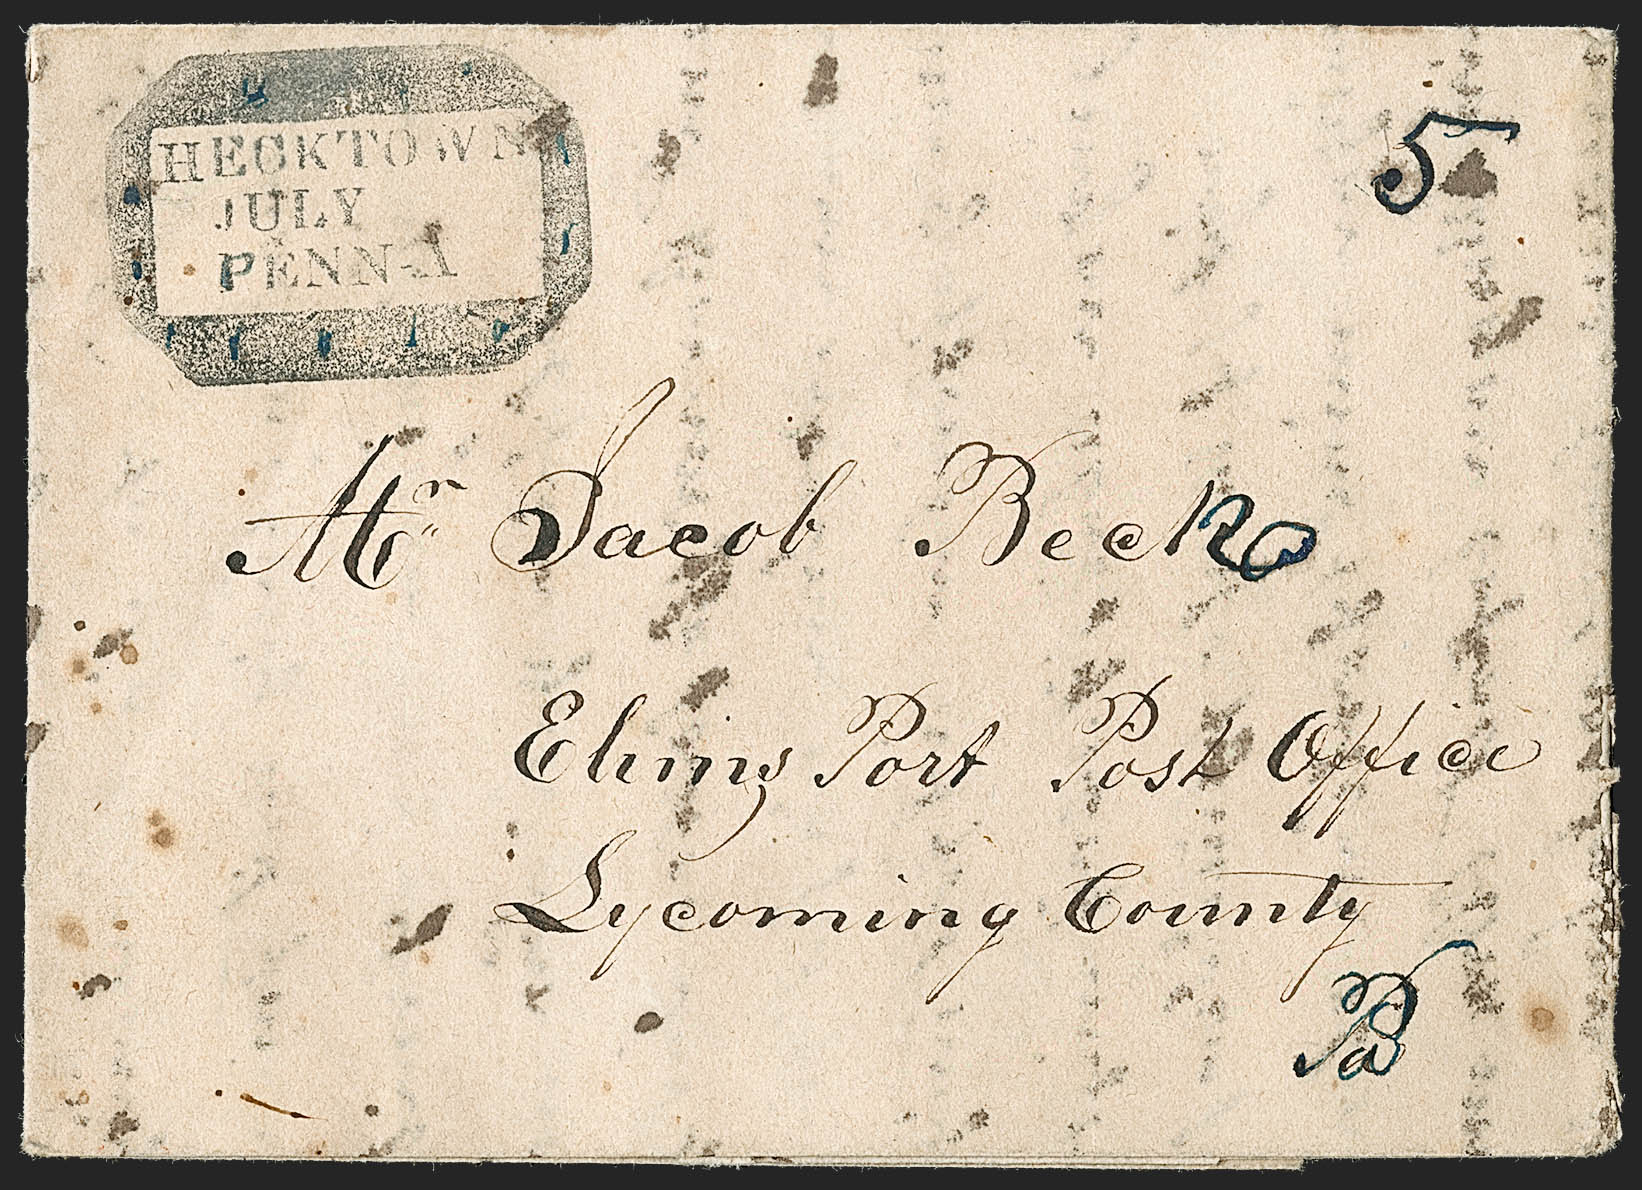 HECKTOWN
JULY
PENN-A
5
Mr Jacob Beck
Elims Port Post Office
Lycoming County
Pa